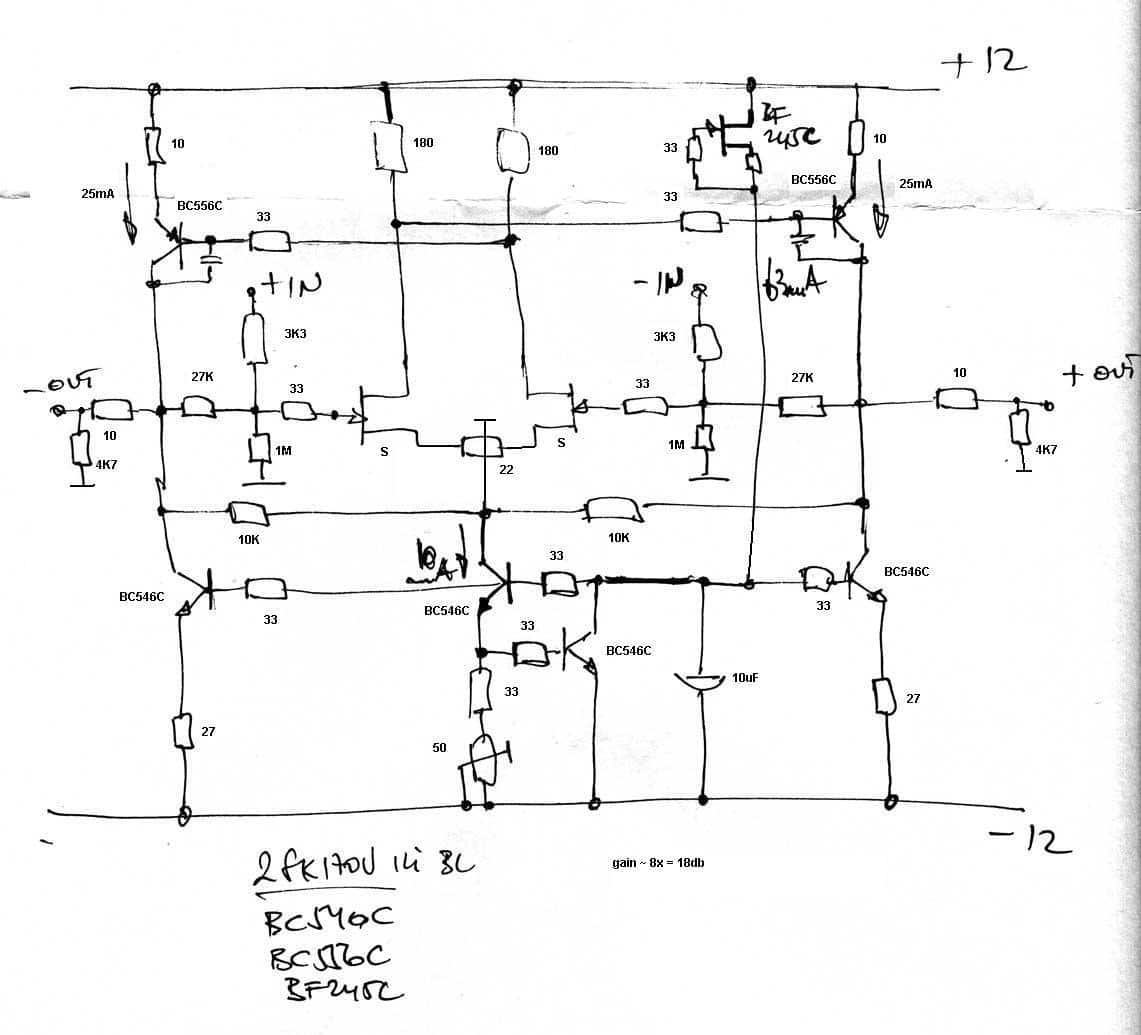 +12
10
180
180
BF
245C
33
10
25mA
BC556C
BC556C
25mA
33
33
+IN
-IN
3K3
3K3
-OUT
27K
33
33
27K
10
+ OUT
10
4K7
1M
S
22
S
1M
4K7
10K
10K
10
mA
33
BC546C
33
BC546C
33
BC546C
33
BC546C
33
10uF
27
50
27
-12
gain ~ 8x = 18db
BC546C
BC556C
BF245C